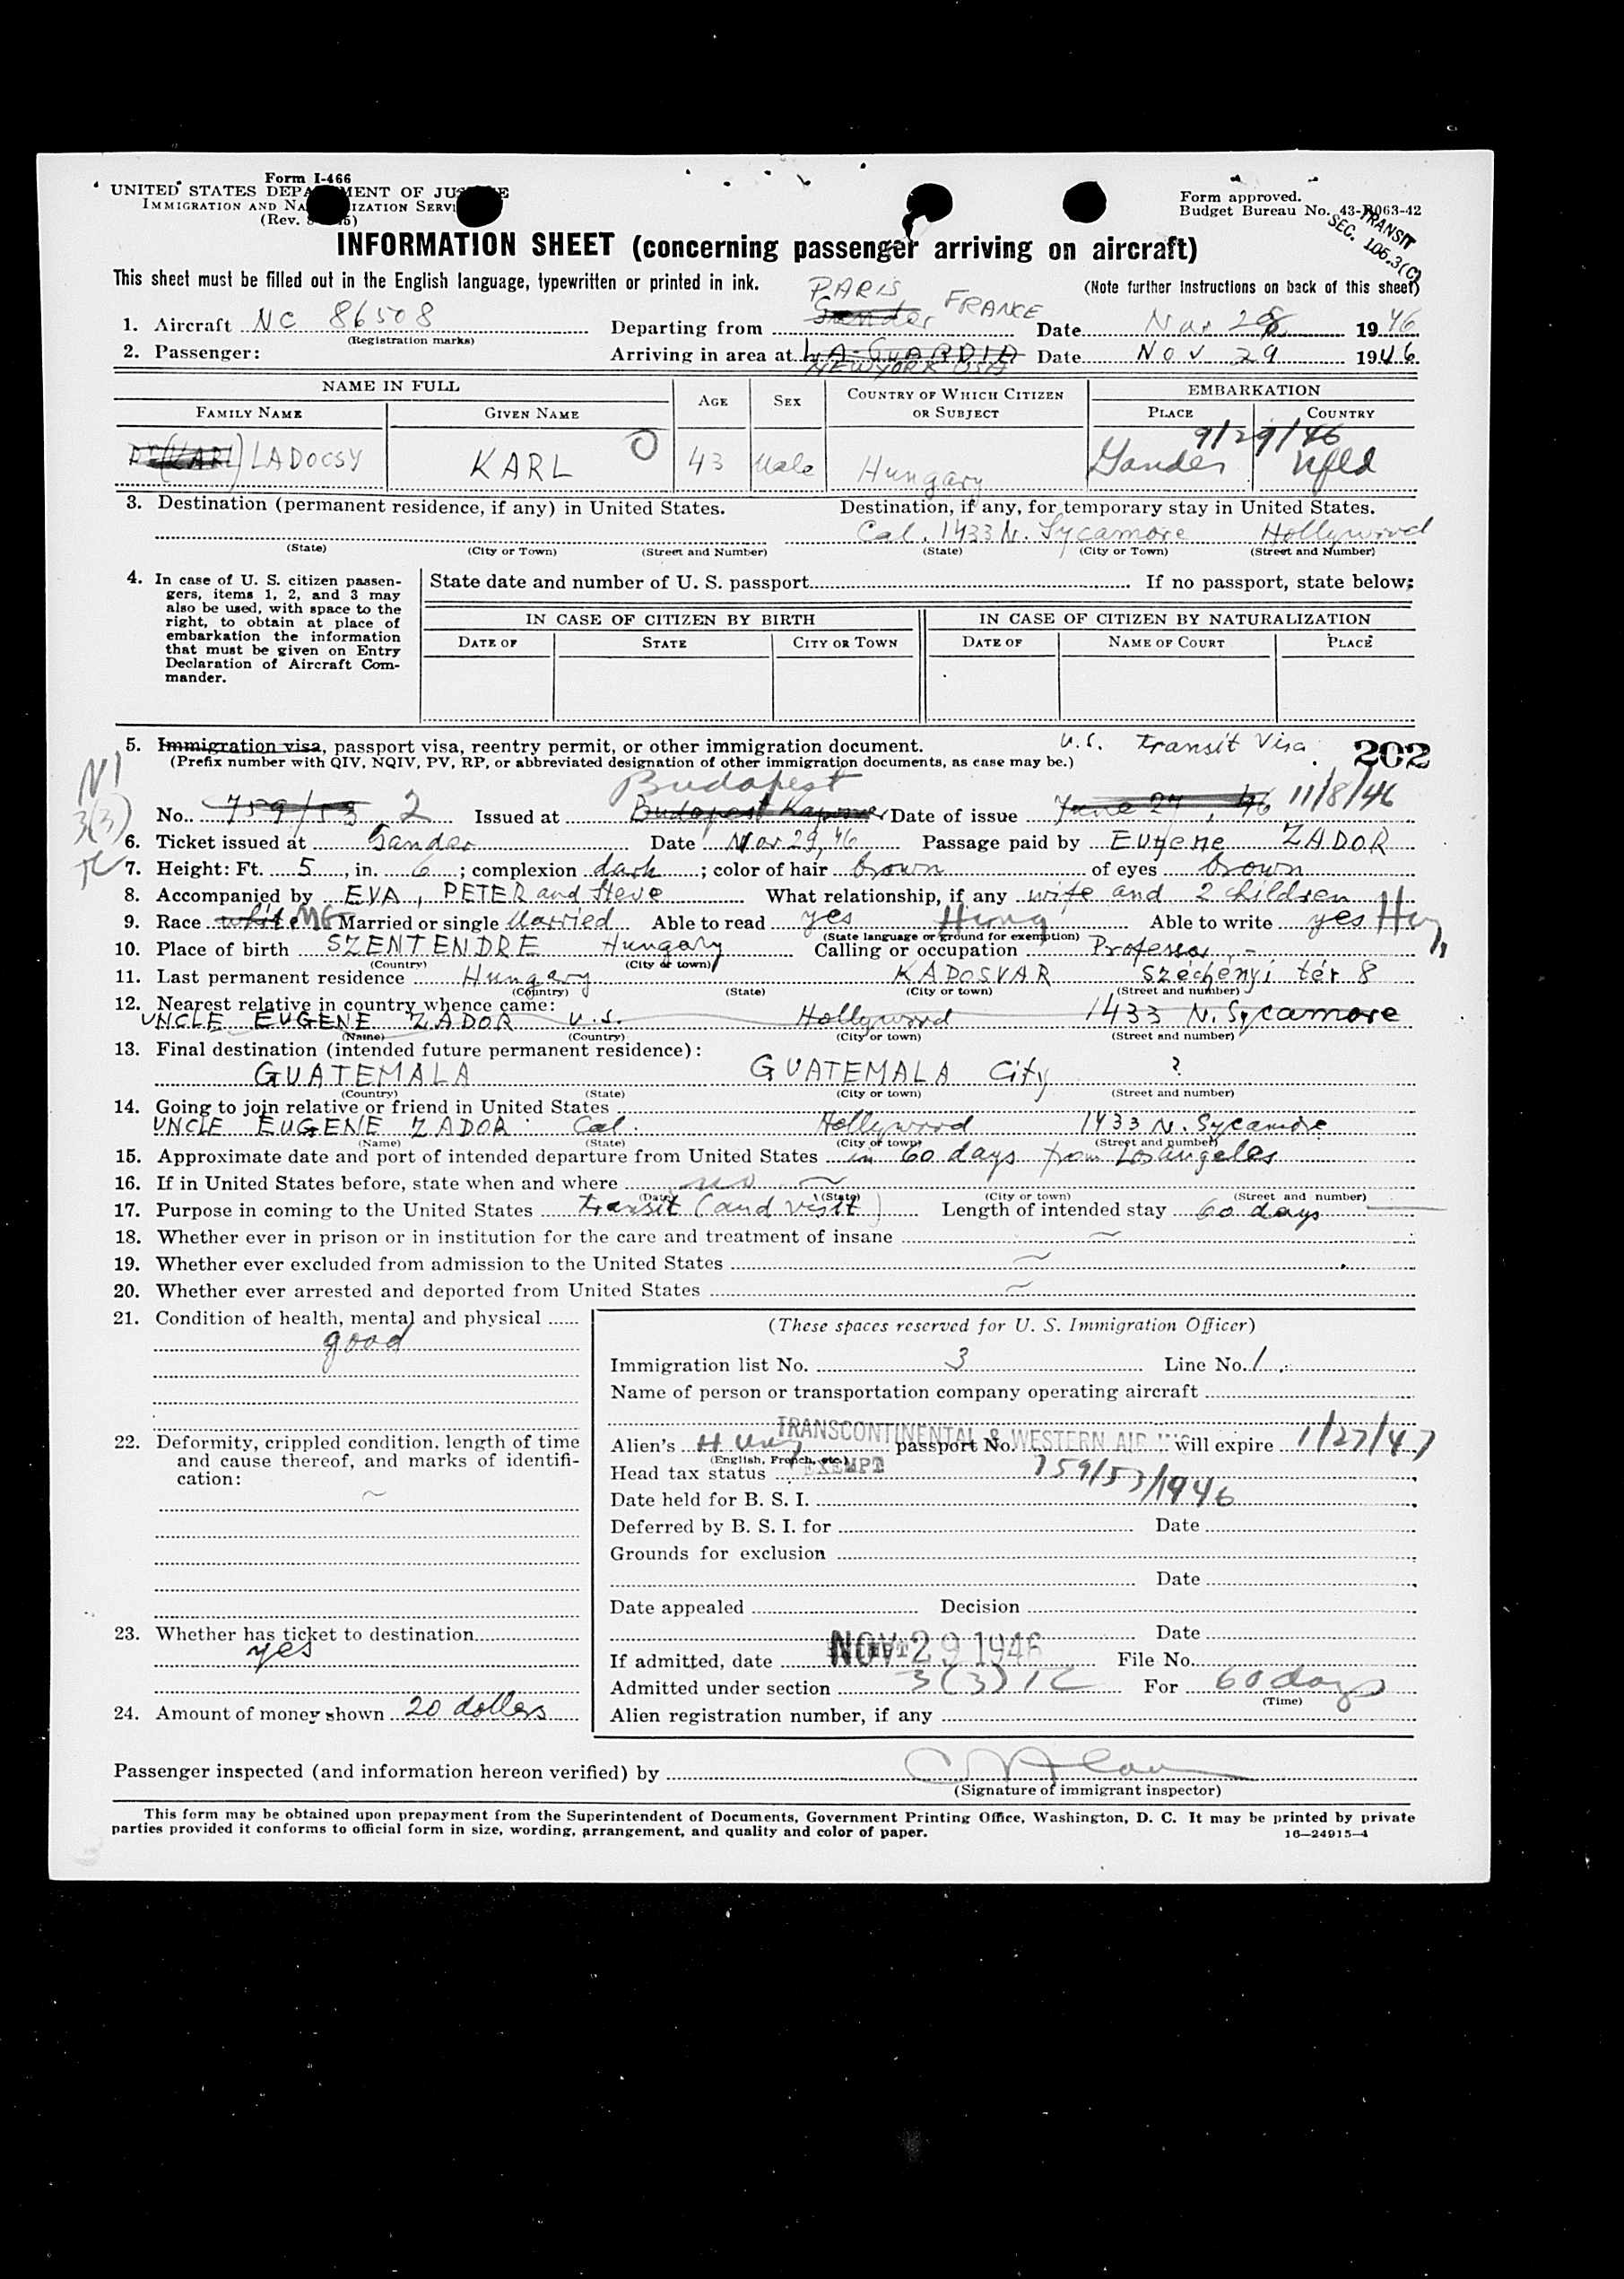 Form I-466
UNITED STATES DEPARTMENT OF JUSTICE
IMMIGRATION AND NATURALIZATION SERVICE
(Rev.
Form approved.
Budget Bureau No. 43-R063-42
TRANSIT
SEC. 105.3(C)
INFORMATION SHEET (concerning passenger arriving on aircraft)
This sheet must be filled out in the English language, typewritten or printed in ink.
(Note further instructions on back of this sheet)
PARIS FRANCE
1. Aircraft NC 86508 Departing from Gander Date Nov 28 1946
(Registration marks)
2. Passenger: Arriving in area at LA GUARDIA Date NOV 29 1946
NEW YORK USA
NAME IN FULL AGE SEX COUNTRY OF WHICH CITIZEN OR SUBJECT EMBARKATION
FAMILY NAME GIVEN NAME PLACE COUNTRY
9/29/46
Dr (KARL) LADOCSY KARL 43 Male Hungary Gander Nfld
3. Destination (permanent residence, if any) in United States. Destination, if any, for temporary stay in United States.
Cal. 1433 N. Sycamore Hollywood
(State) (City or Town) (Street and Number) (State) (City or Town) (Street and Number)
4. In case of U. S. citizen passengers, items 1, 2, and 3 may also be used, with space to the right, to obtain at place of embarkation the information that must be given on Entry Declaration of Aircraft Commander.
State date and number of U. S. passport If no passport, state below:
IN CASE OF CITIZEN BY BIRTH IN CASE OF CITIZEN BY NATURALIZATION
DATE OF STATE CITY OR TOWN DATE OF NAME OF COURT PLACE
5. Immigration visa, passport visa, reentry permit, or other immigration document. U.S. Transit Visa 202
(Prefix number with QIV, NQIV, PV, RP, or abbreviated designation of other immigration documents, as case may be.)
N1
3(3)
Budapest
No. 759/53 2 Issued at Budapest Date of issue June 27, 46 11/8/46
6. Ticket issued at Gander Date Nov 29, 46 Passage paid by Eugene ZADOR
7. Height: Ft. 5, in. 6; complexion dark; color of hair brown of eyes brown
8. Accompanied by EVA, PETER and Steve What relationship, if any wife and 2 children
9. Race white MG Married or single Married Able to read yes Hung Able to write yes Hung
(State language or ground for exemption)
10. Place of birth SZENTENDRE Hungary Calling or occupation Professor
(Country) (City or town)
11. Last permanent residence Hungary KAPOSVAR Széchényi tér 8
(Country) (State) (City or town) (Street and number)
12. Nearest relative in country whence came:
UNCLE EUGENE ZADOR U.S. Hollywood 1433 N. Sycamore
(Name) (Country) (City or town) (Street and number)
13. Final destination (intended future permanent residence):
GUATEMALA GUATEMALA City ?
(Country) (State) (City or town) (Street and number)
14. Going to join relative or friend in United States
UNCLE EUGENE ZADOR Cal. Hollywood 1433 N. Sycamore
(Name) (State) (City or town) (Street and number)
15. Approximate date and port of intended departure from United States in 60 days from Los Angeles
16. If in United States before, state when and where no
(Date) (State) (City or town) (Street and number)
17. Purpose in coming to the United States transit (and visit) Length of intended stay 60 days
18. Whether ever in prison or in institution for the care and treatment of insane ~
19. Whether ever excluded from admission to the United States ~
20. Whether ever arrested and deported from United States ~
21. Condition of health, mental and physical
good
22. Deformity, crippled condition, length of time and cause thereof, and marks of identification:
~
23. Whether has ticket to destination
yes
24. Amount of money shown 20 dollers
(These spaces reserved for U. S. Immigration Officer)
Immigration list No. 3 Line No. 1
Name of person or transportation company operating aircraft
TRANSCONTINENTAL & WESTERN AIR INC
Alien's Hung passport No. will expire 1/27/47
(English, French, etc.)
Head tax status EXEMPT 759/53/1946
Date held for B. S. I.
Deferred by B. S. I. for Date
Grounds for exclusion
Date
Date appealed Decision
Date
If admitted, date NOV 29 1946 File No.
Admitted under section 3(3) For 60 days
(Time)
Alien registration number, if any
Passenger inspected (and information hereon verified) by
(Signature of immigrant inspector)
This form may be obtained upon prepayment from the Superintendent of Documents, Government Printing Office, Washington, D. C. It may be printed by private
parties provided it conforms to official form in size, wording, arrangement, and quality and color of paper. 16—24915-4